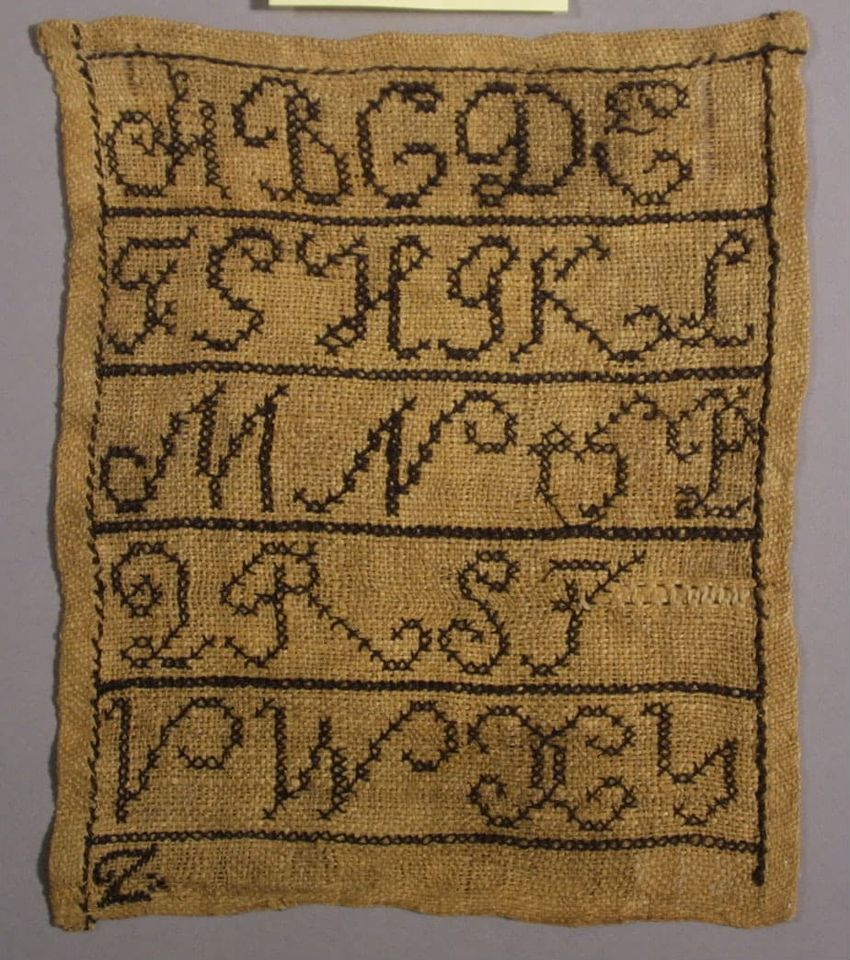 A B C D E
F G H I K L
M N O P
Q R S T
V W X Y
Z